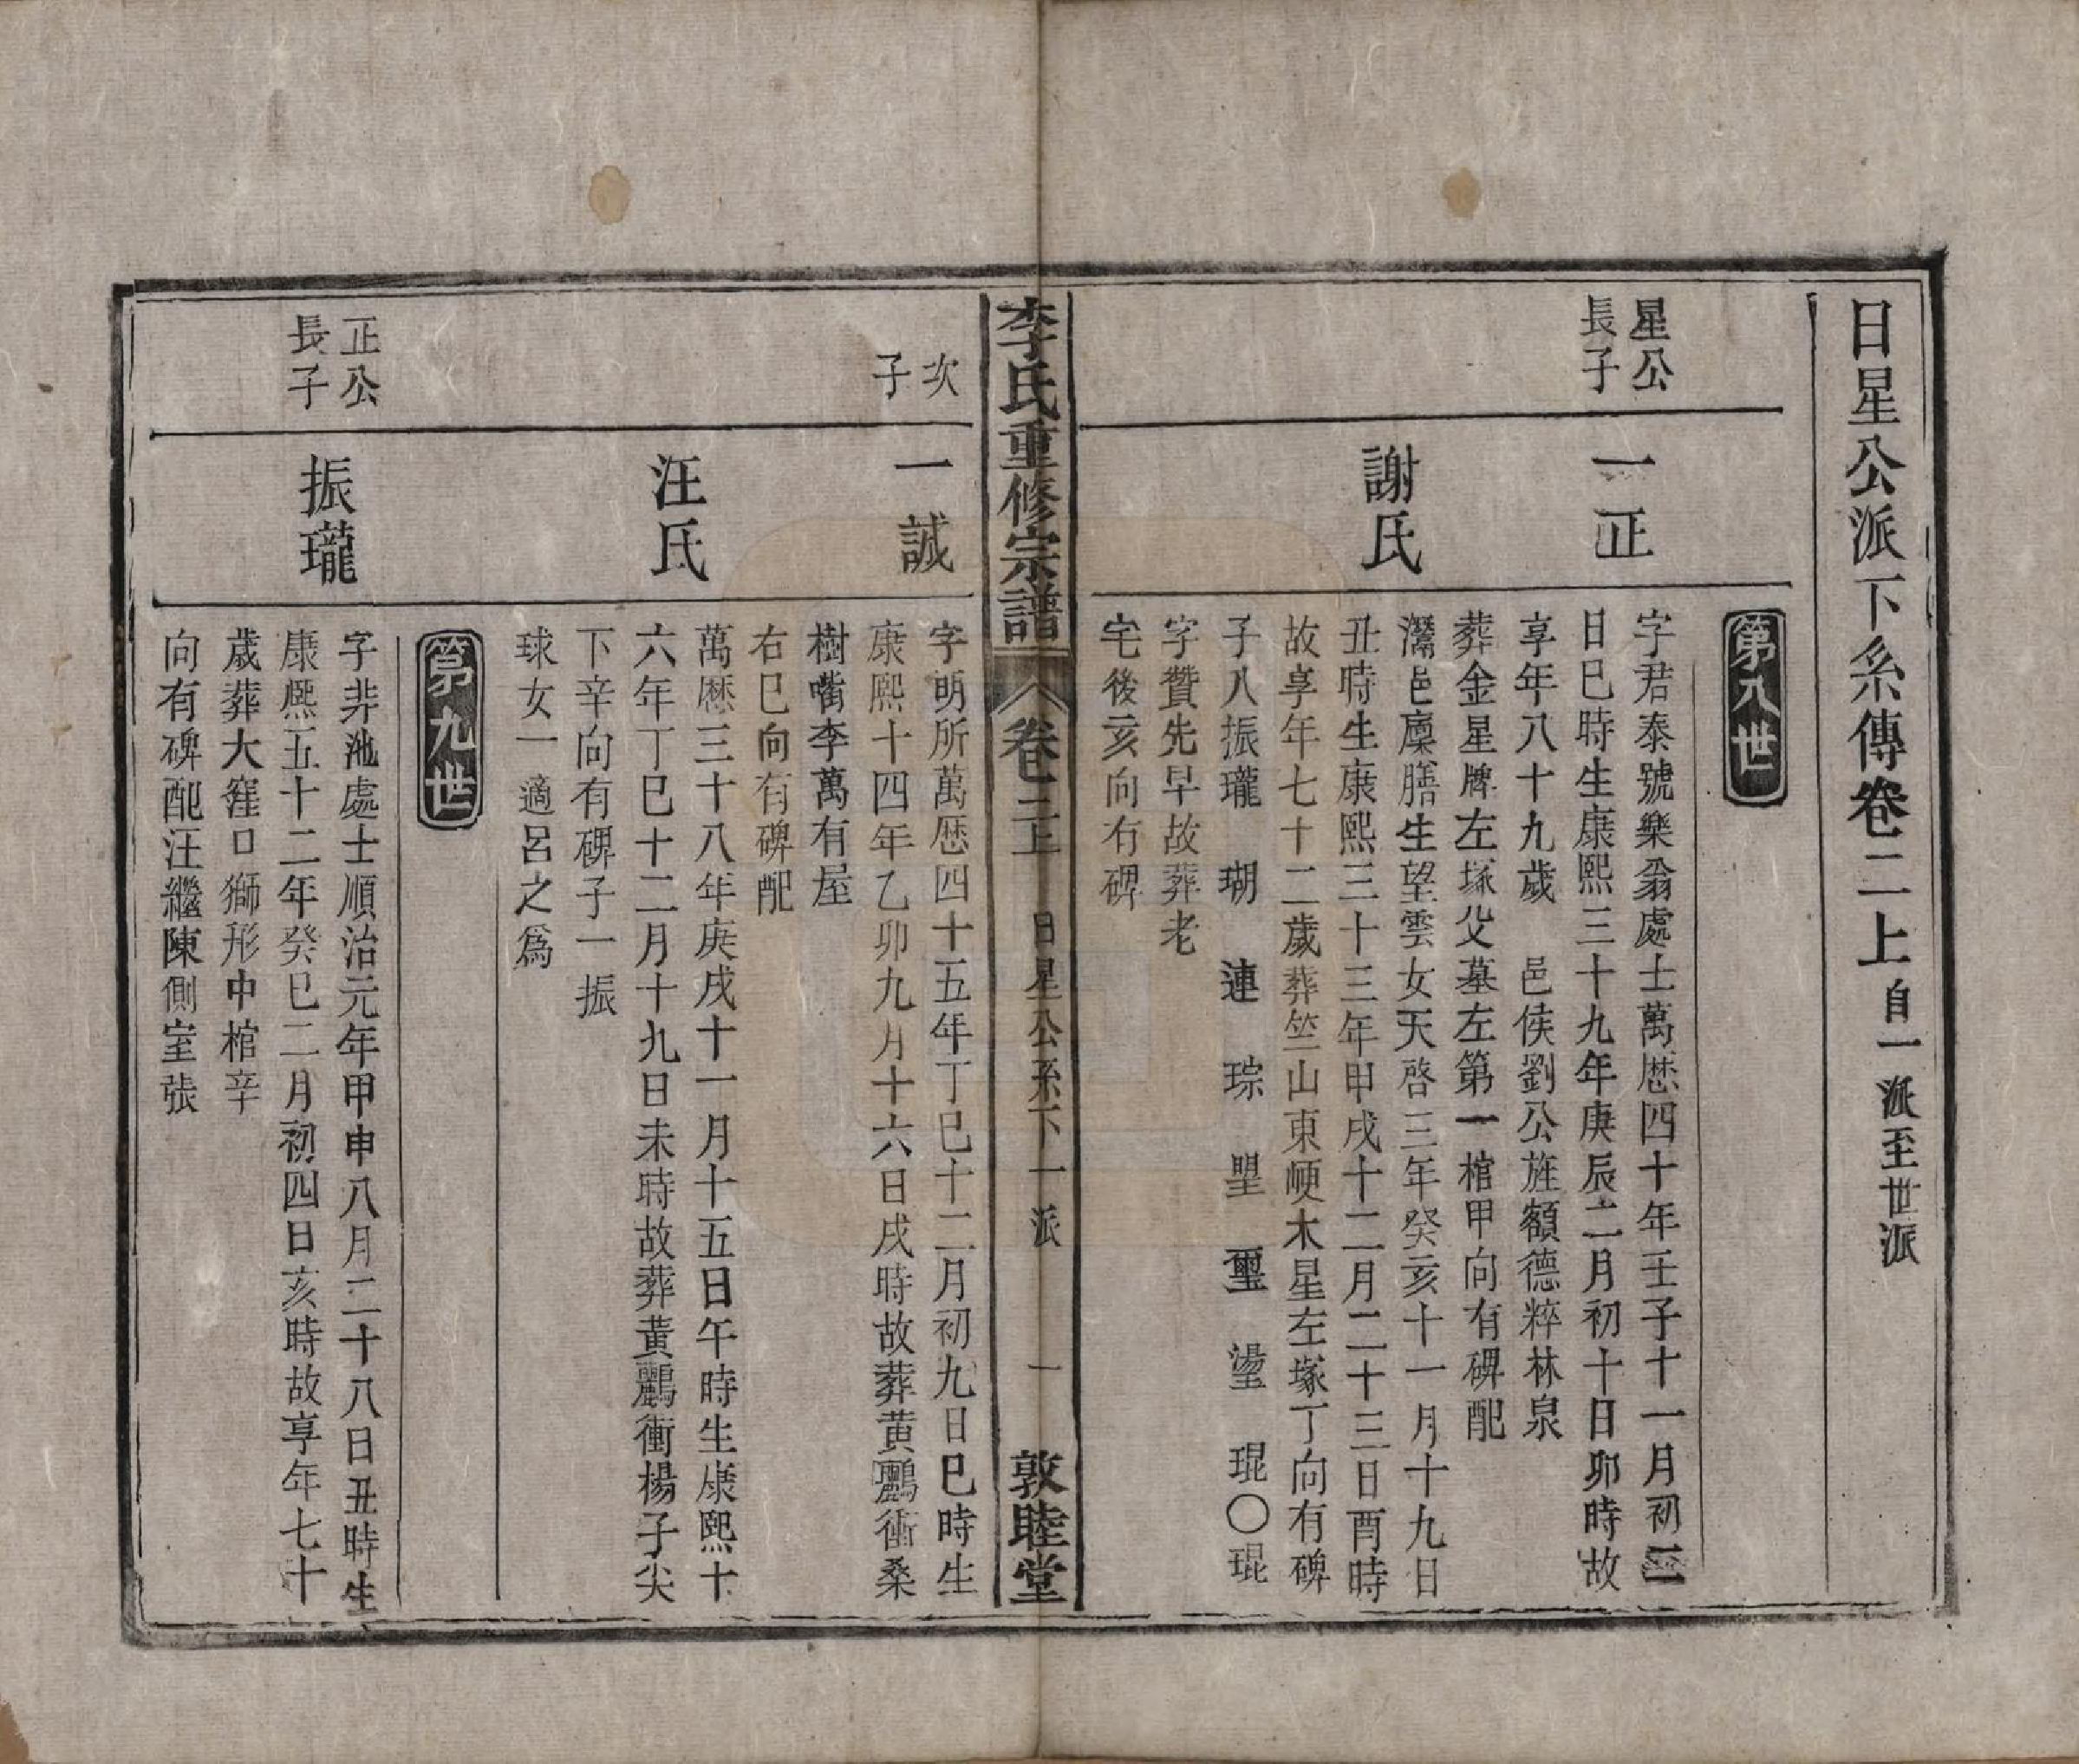 日星公派下糸傳卷二上自一派至世派
第八世
星公
長子
一正
字君泰號樂翁處士萬厯四十年壬子十一月初二
日巳時生康熙三十九年庚辰二月初十日卯時故
享年八十九歲 邑侯劉公旌額德粹林泉
葬金星牌左塚父墓左第一棺甲向有碑配
謝氏
灊邑廩膳生望雲女天啓三年癸亥十一月十九日
丑時生康熙三十三年甲戌十二月二十三日酉時
故享年七十二歲葬竺山東㟰木星左塚丁向有碑
子八振瓏 瑚 璉 琮 琞 璽 璗 琨〇琨
字贊先早故葬老
宅後亥向有碑
李氏重修宗譜 卷二上 日星公系下一派 一 敦睦堂
次
子
一誠
字明所萬厯四十五年丁巳十二月初九日巳時生
康熙十四年乙卯九月十六日戌時故葬黃鸝衝桑
樹嘴李萬有屋
右巳向有碑配
汪氏
萬厯三十八年庚戌十一月十五日午時生康熙十
六年丁巳十二月十九日未時故葬黃鸝衝楊子尖
下辛向有碑子一振
球女一適呂之爲
第九世
正公
長子
振瓏
字非池處士順治元年甲申八月二十八日丑時生
康熙五十二年癸巳二月初四日亥時故享年七十
歲葬大窪口獅形中棺辛
向有碑配汪繼陳側室張